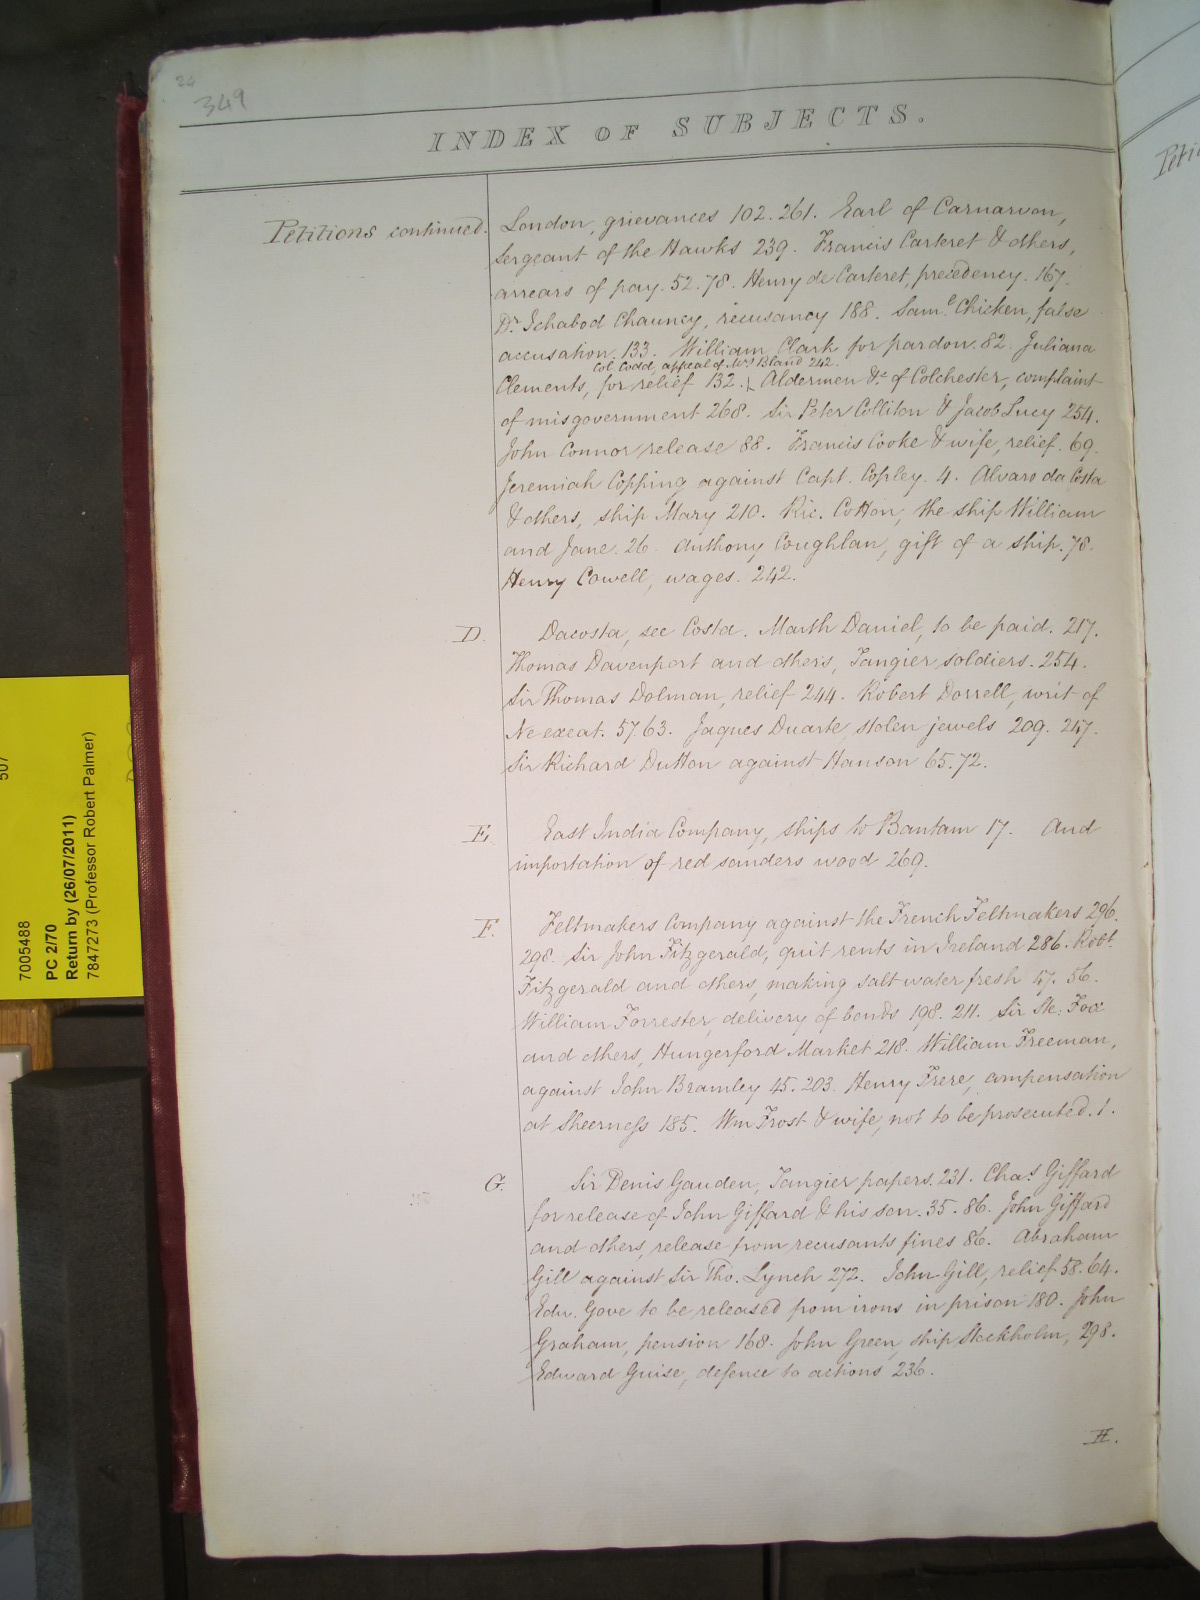 24
349
INDEX OF SUBJECTS.
Petitions continued.
London, grievances 102. 261. Earl of Carnarvon,
Sergeant of the Hawks 239. Francis Carteret & others,
arrears of pay. 52. 78. Henry de Carteret, precedency. 167.
Dr. Ichabod Chauncy, recusancy 188. Saml. Chicken, false
accusation. 133. William Clark for pardon. 82. Juliana
Col. Codd, appeal of Mrs Bland 242.
Clements, for relief 132. Aldermen &c of Colchester, complaint
of misgovernment 268. Sir Peter Colliton & Jacob Lucy 254.
John Connor release 88. Francis Cooke & wife, relief. 69.
Jeremiah Copping against Capt. Copley. 4. Alvaro da Costa
& others, ship Mary 210. Ric. Cotton, the ship William
and Jane. 26. Anthony Coughlan, gift of a ship. 78.
Henry Cowell, wages. 242.
D.
Dacosta, see Costa. Marth Daniel, to be paid. 217.
Thomas Davenport and others, Tangier soldiers. 254.
Sir Thomas Dolman, relief 244. Robert Dorrell, writ of
Ne exeat. 57 63. Jaques Duarte, stolen jewels 209. 247.
Sir Richard Dutton against Hanson 65. 72.
E.
East India Company, ships to Bantam 17. And
importation of red sanders wood 269.
F.
Feltmakers Company against the French Feltmakers 296.
298. Sir John Fitzgerald, quit rents in Ireland 286. Robt.
Fitzgerald and others, making salt water fresh 47. 56.
William Forrester, delivery of bonds 198. 211. Sir Ste: Fox
and others, Hungerford Market 218. William Freeman,
against John Bramley 45. 203. Henry Frere, compensation
at Sheerness 185. Wm Frost & wife, not to be prosecuted. 1.
G.
Sir Denis Gauden, Tangier papers. 231. Chas. Giffard
for release of John Giffard & his son. 35. 86. John Giffard
and others, release from recusants fines 86. Abraham
Gill against Sir Tho. Lynch 272. John Gill, relief 58. 64.
Edw. Gove to be released from irons in prison 180. John
Graham, pension 168. John Green, ship Stockholm, 298.
Edward Guise, defence to actions 236.
H.
507
7005488
PC 2/70
Return by (26/07/2011)
7847273 (Professor Robert Palmer)